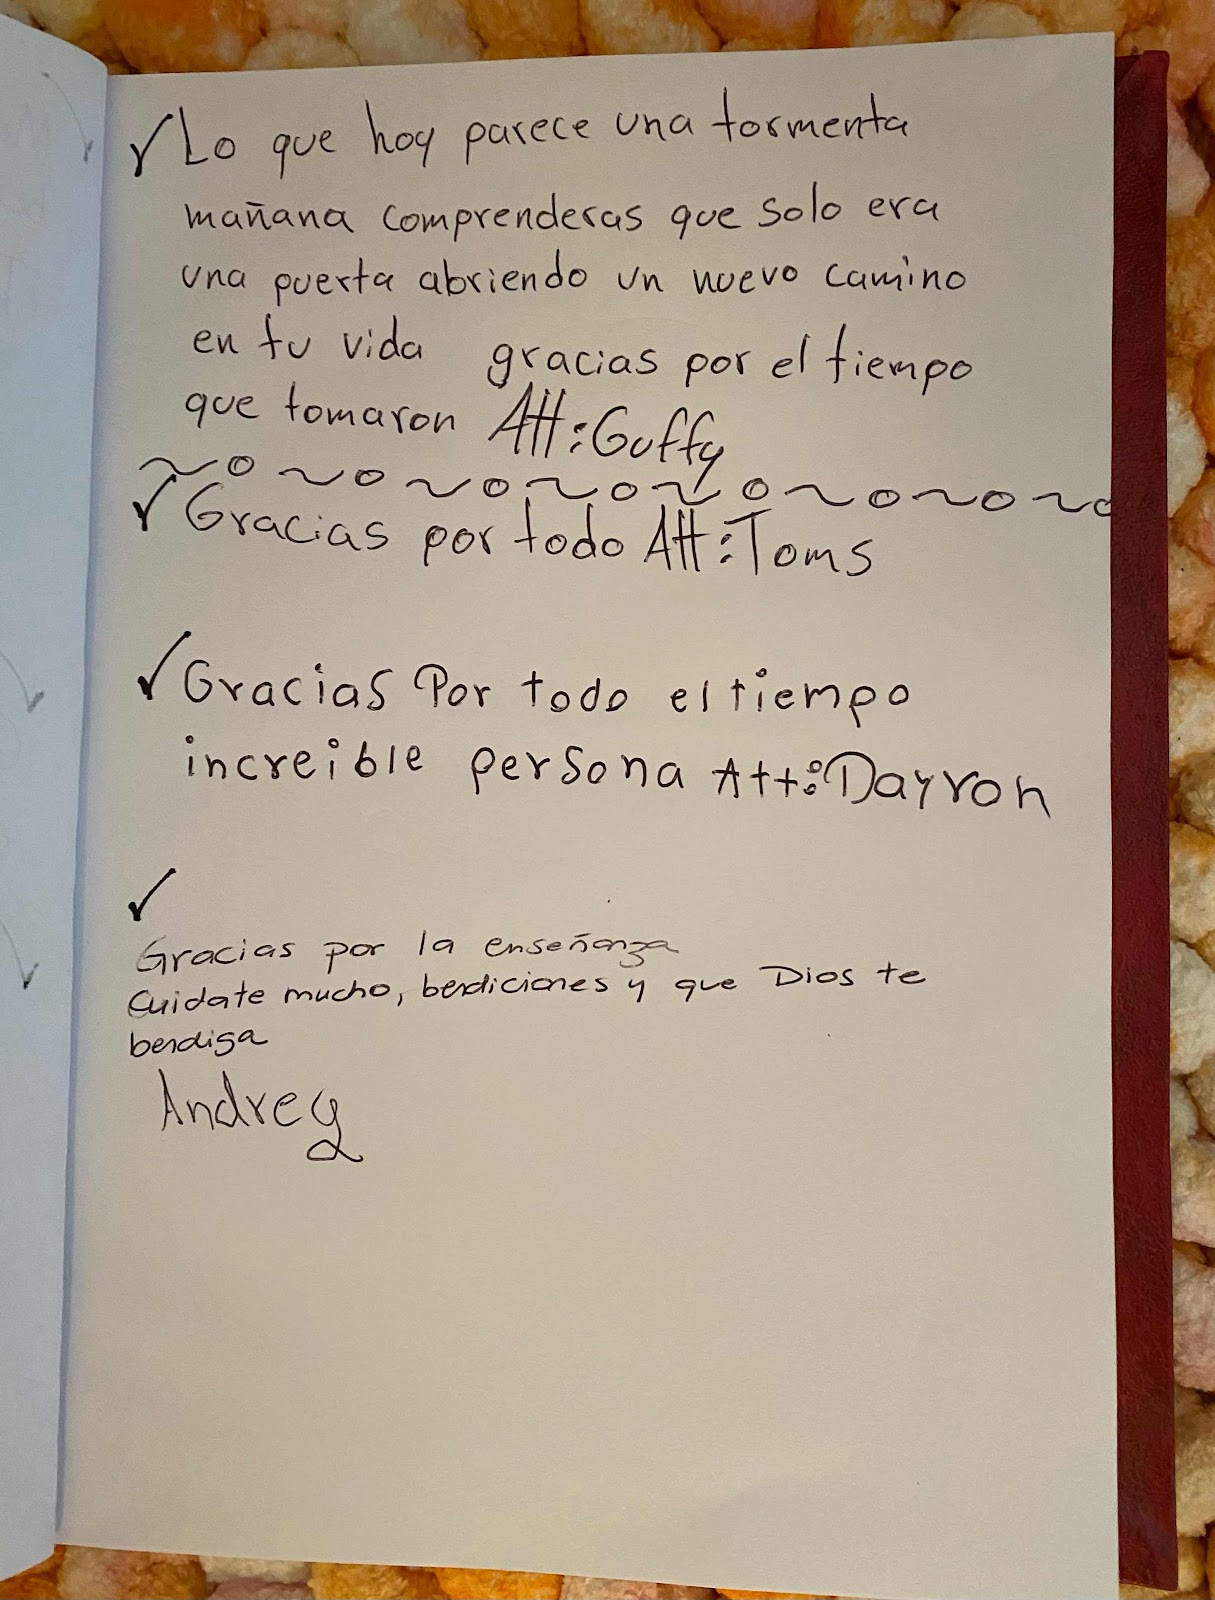 ✓ Lo que hoy parece una tormenta
mañana comprenderas que solo era
una puerta abriendo un nuevo camino
en tu vida gracias por el tiempo
que tomaron Att: Guffy
✓ Gracias por todo Att: Toms
✓ Gracias Por todo el tiempo
increible persona Att: Dayron
✓
Gracias por la enseñanza
Cuidate mucho, bendiciones y que Dios te
bendiga
Andrey